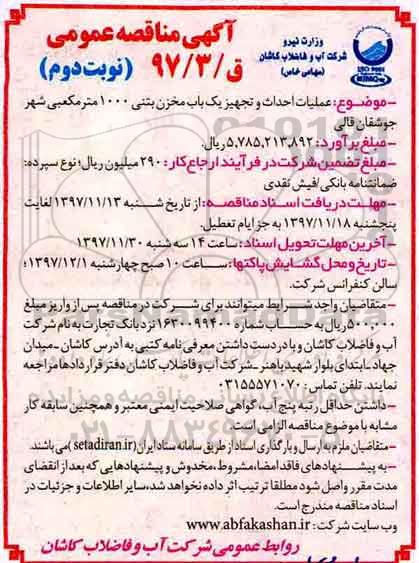 آگهی مناقصه عمومی
ق/۹۷/۳ (نوبت دوم)
وزارت نیرو
شرکت آب و فاضلاب کاشان
(سهامی خاص)
-موضوع: عملیات احداث و تجهیز یک باب مخزن بتنی ۱۰۰۰ مترمکعبی شهر
جوشقان قالی
-مبلغ برآورد: ۵,۷۸۵,۲۱۳,۸۹۲ ریال.
-مبلغ تضمین شرکت در فرآیند ارجاع کار: ۲۹۰ میلیون ریال؛ نوع سپرده:
ضمانتنامه بانکی/فیش نقدی
-مهلت دریافت اسناد مناقصه: از تاریخ شنبه ۱۳۹۷/۱۱/۱۳ لغایت
پنجشنبه ۱۳۹۷/۱۱/۱۸ به جز ایام تعطیل.
-آخرین مهلت تحویل اسناد: ساعت ۱۴ سه شنبه ۱۳۹۷/۱۱/۳۰
-تاریخ و محل گشایش پاکتها: ساعت ۱۰ صبح چهارشنبه ۱۳۹۷/۱۲/۱؛
سالن کنفرانس شرکت.
-متقاضیان واجد شرایط میتوانند برای شرکت در مناقصه پس از واریز مبلغ
۵۰۰,۰۰۰ ریال به حساب شماره ۱۶۳۰۰۹۹۴۰۰ نزد بانک تجارت به نام شرکت
آب و فاضلاب کاشان و با در دست داشتن معرفی نامه کتبی به آدرس کاشان-میدان
جهاد-ابتدای بلوار شهید باهنر-شرکت آب و فاضلاب کاشان دفتر قراردادها مراجعه
نمایند. تلفن تماس: ۰۳۱۵۵۵۷۱۰۷۰
-داشتن حداقل رتبه پنج آب، گواهی صلاحیت ایمنی معتبر و همچنین سابقه کار
مشابه با موضوع مناقصه الزامی است.
-متقاضیان ملزم به ارسال و بارگذاری اسناد از طریق سامانه ستاد ایران (setadiran.ir) می باشند.
-به پیشنهادهای فاقد امضا، مشروط، مخدوش و پیشنهادهایی که بعد از انقضای
مدت مقرر واصل شود مطلقا ترتیب اثر داده نخواهد شد، سایر اطلاعات و جزئیات در
اسناد مناقصه مندرج است.
وب سایت شرکت: www.abfakashan.ir
روابط عمومی شرکت آب و فاضلاب کاشان